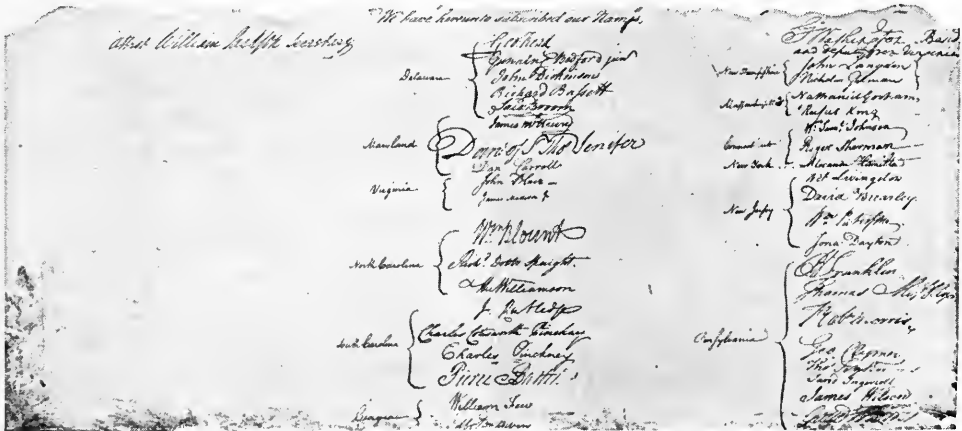 We have hereunto subscribed our Names,
Attest William Jackson Secretary
Delaware
Geo: Read
Gunning Bedford jun
John Dickinson
Richard Bassett
Jaco: Broom
Maryland
James McHenry
Dan of St Thos Jenifer
Danl Carroll
Virginia
John Blair—
James Madison Jr
North Carolina
Wm Blount
Richd Dobbs Spaight.
Hu Williamson
South Carolina
J. Rutledge
Charles Cotesworth Pinckney
Charles Pinckney
Pierce Butler.
Georgia
William Few
Abr Baldwin
Go Washington
and deputy from Virginia
New Hampshire
John Langdon
Nicholas Gilman
Massachusetts
Nathaniel Gorham
Rufus King
Connecticut
Wm Saml Johnson
Roger Sherman
New York
Alexander Hamilton
New Jersey
Wil: Livingston
David Brearley.
Wm Paterson.
Jona: Dayton
Pensylvania
B Franklin
Thomas Mifflin
Robt Morris
Geo. Clymer
Thos FitzSimons
Jared Ingersoll
James Wilson
Gouv Morris